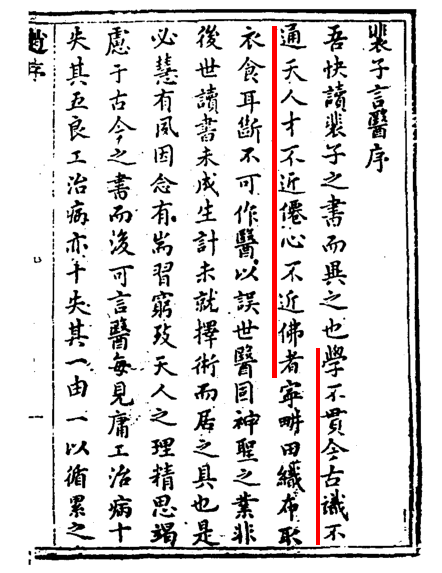 裴子言醫序
吾快讀裴子之書而異之也學不貫今古識不
通天人才不近僊心不近佛者寧畊田織布取
衣食耳斷不可作醫以誤世醫固神聖之業非
後世讀書未成生計未就擇術而居之具也是
必慧有夙因念有耑習窮攷天人之理精思竭
慮于古今之書而後可言醫每見庸工治病十
失其五良工治病亦十失其一由一以循累之
序
一